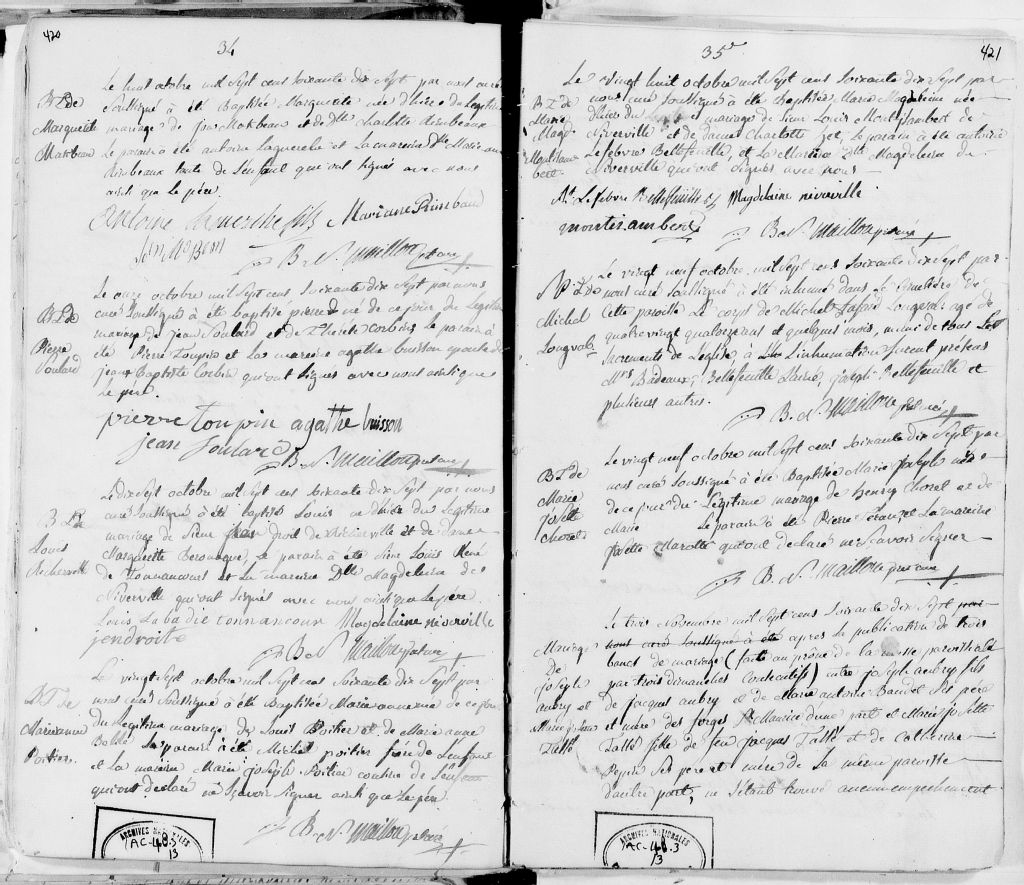 420
34
Le huit octobre mil sept cens soixante dix sept par nous curé
Bt. de Soussigné à été Baptisée Marguerite née d'hier du Legitime
Marguerite mariage de et de Dlle Charlotte Rimbeaux
Le parain à été antoine et La maraine Dlle Marie anne
Rimbeaux tante de L'enfant qui ont signés avec nous
ainsi que Le père.
Antoine fils Marianne Rimbaud
B. N. Maillou ptre curé
Le onze octobre mil sept cens soixante dix sept par nous
Bt de curé soussigné à été baptisé pierre né de ce jour du Legitime
Pierre mariage de jean Soulard et de Therese Corbin Le parain à
Soulard été Pierre Toupin et La maraine agathe buisson epouse de
jean Baptiste Corbin qui ont signés avec nous ainsi que
Le père.
pierre toupin agathe buisson
jean Soulard
B. N. Maillou ptre curé
Le dix sept octobre mil sept cens soixante dix sept par nous
Bt de curé soussigné à été baptisé Louis né d'hier du Legitime
Louis mariage de Sieur jean droit de Richerville et de dame
Richerville Marguerite Le parain à été Sieur Louis René
de Tonnancour et La maraine Dlle Magdeleine de
Niverville qui ont signés avec nous ainsi que Le père
Louis Labadie tonnancour Magdelaine niverville
jendroite
B. N. Maillou ptre curé
Le vingt sept octobre mil sept cens soixante dix sept par
Bt de nous curé soussigné à été Baptisée Marie anne née de ce jour
Marianne du Legitime mariage de Louis Poitier et de Marie anne
Poitier. Le parain à été Michel poitier frère de L'enfant
et La maraine Marie joseph Poitier de L'enfant
qui ont declaré ne sçavoir signer ainsi que Le père.
B. N. Maillou ptre curé
ARCHIVES NATIONALES
AC-48.3
/3
421
35e
Le vingt huit octobre mil sept cens soixante dix sept par
Bt de nous curé soussigné à été Baptisée Marie Magdeleine née
Marie d'hier du Legitime mariage de Sieur Louis Montizambert de
Magd. Niverville et de dame Charlotte Le parain à été antoine
Montizambert. Lefebvre Bellefeuille, et La Maraine Dlle Magdeleine de
Niverville qui ont signés avec nous
Ant. Lefebvre Bellefeuille Magdelaine niverville
montizambert
B. N. Maillou ptre curé
Le vingt neuf octobre mil sept cens soixante dix sept par
S. de nous curé soussigné à été inhumé dans Le cimetière de
Michel Cette paroisse Le corps de Michel Longval agé de
Longval quatrevingt quatorze ans et quelques mois, muni de tous Les
Sacrements de L'eglise, à L'inhumation furent présens
Mrs Badeaux, Bellefeuille L'ainé, joseph Bellefeuille et
plusieurs autres.
B. N. Maillou ptre curé
Le vingt neuf octobre mil sept cens soixante dix sept par
Bt de nous curé soussigné à été Baptisée Marie Joseph née
Marie de ce jour du Légitime mariage de henry Choret et de
josette Marie Le parain à été Pierre et La maraine
Choret josette Marotte qui ont declaré ne sçavoir signer
B. N. Maillou ptre curé
Le trois Novembre mil sept cens soixante dix sept par
Mariage nous curé soussigné à été apres la publication de trois
de bancs de mariage (faite au prône de la messe paroissiale
joseph par trois dimanches consecutifs) entre joseph aubry fils
aubry et de jacques aubry et de Marie antoine Baudet ses père
Marie josette et mere des forges St Maurice d'une part et Marie josette
fille de feu jacques et de Catherine
Pepin ses pere et mere de la meme paroisse
d'autre part, ne s'étant trouvé aucun empechement
ARCHIVES NATIONALES
AC-48.3
/3